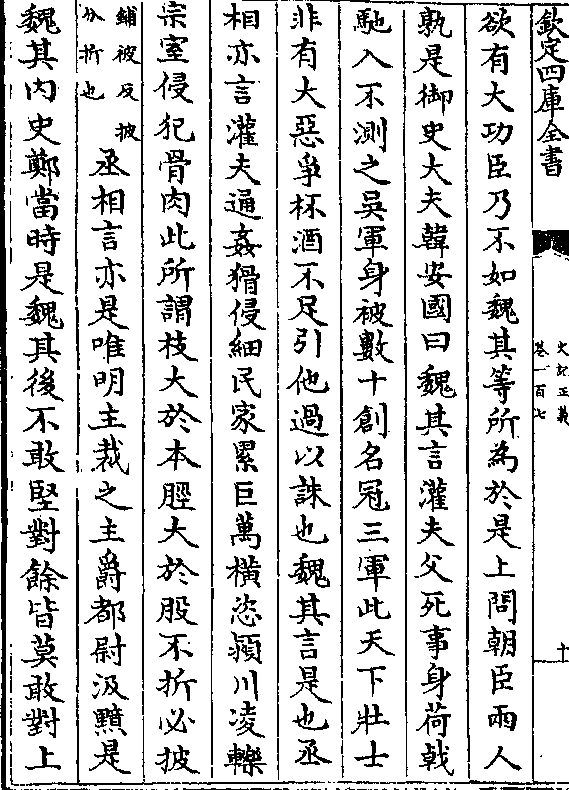 欽定四庫全書
史記正義
卷一百七
十
欲有大功臣乃不如魏其等所為於是上問朝臣兩人
孰是御史大夫韓安國曰魏其言灌夫父死事身荷戟
馳入不測之吳軍身被數十創名冠三軍此天下壯士
非有大惡爭杯酒不足引他過以誅也魏其言是也丞
相亦言灌夫通姦猾侵細民家累巨萬橫恣潁川凌轢
宗室侵犯骨肉此所謂枝大於本脛大於股不折必披
鋪被反披
分折也
丞相言亦是唯明主裁之主爵都尉汲黯是
魏其內史鄭當時是魏其後不敢堅對餘皆莫敢對上